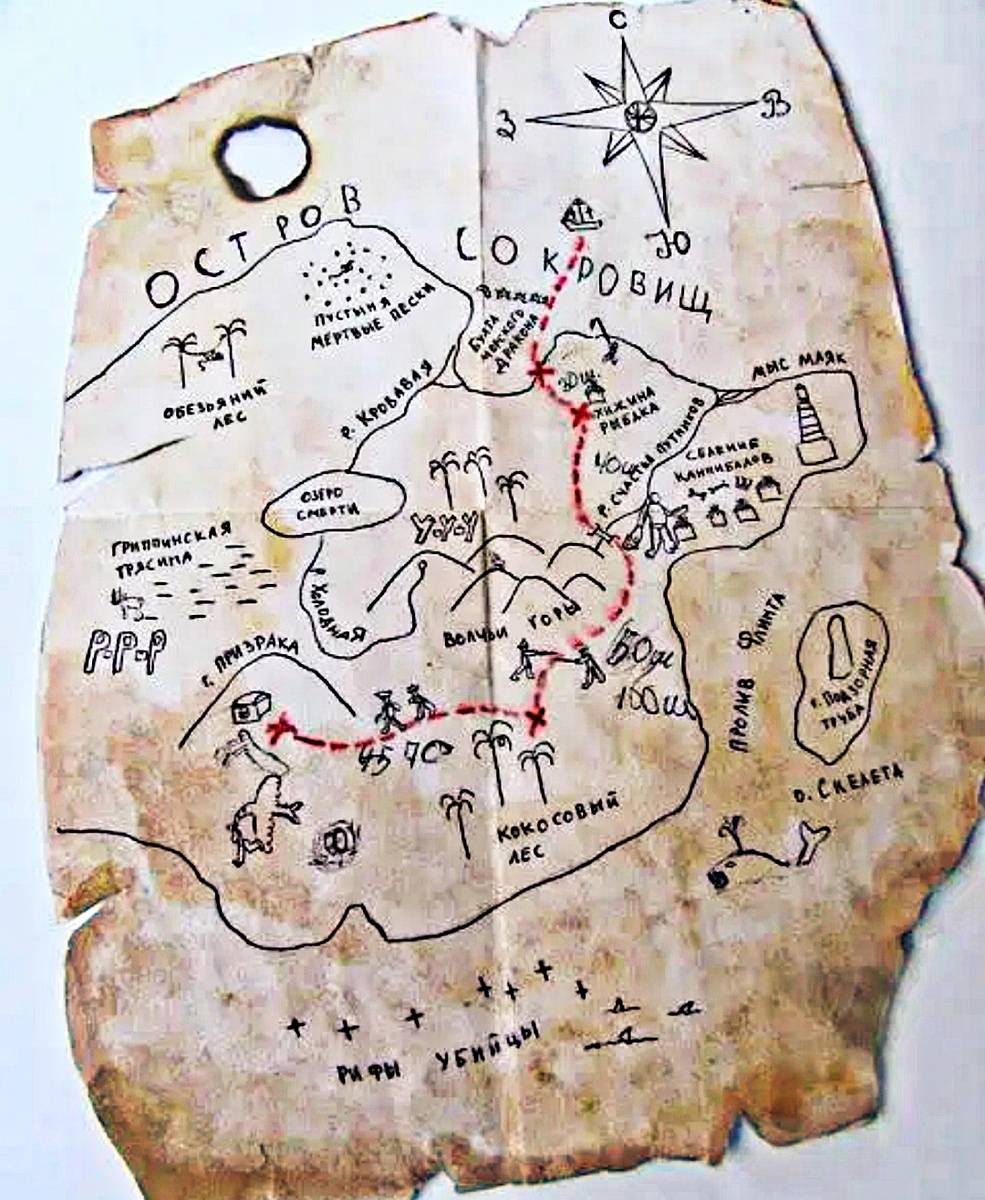 С
З
В
Ю
ОСТРОВ
СОКРОВИЩ
ПУСТЫНЯ
МЕРТВЫЕ ПЕСКИ
БУХТА
МОРСКОГО
ДРАКОНА
ОБЕЗЬЯНИЙ
ЛЕС
р. КРОВАВАЯ
30 ш.
ХИЖИНА
РЫБАКА
МЫС МАЯК
Р. СЧАСТЬЯ ПУТНИКОВ
КАННИБАЛОВ
ОЗЕРО
СМЕРТИ
У-У-У
ГРИППИНСКАЯ
ТРЯСИНА
Р-Р-Р
р. ХОЛОДНАЯ
ВОЛЧЬИ ГОРЫ
г. ПРИЗРАКА
50 ш
100 ш
45 70
ПРОЛИВ ФЛИНТА
г. ПОДЗОРНАЯ
ТРУБА
О. СКЕЛЕТА
КОКОСОВЫЙ
ЛЕС
РИФЫ УБИЙЦЫ